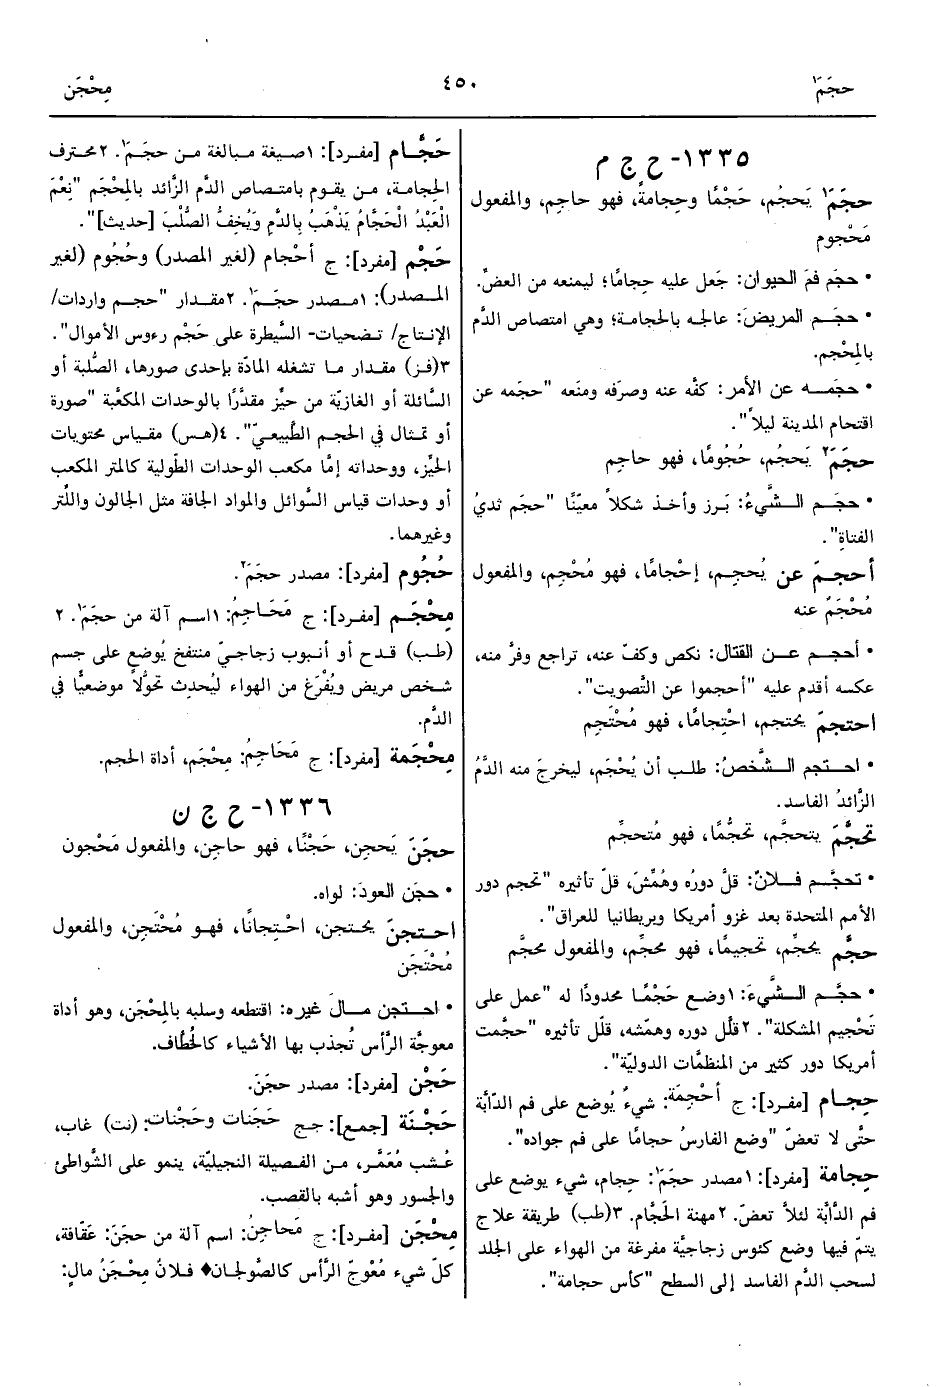 حجَمَ١
٤٥٠
مِحْجَن
١٣٣٥- ح ج م
حجَمَ١ يَحجُم، حَجْمًا وحِجامةً، فهو حاجِم، والمفعول
مَحْجوم
• حجَم فمَ الحيوان: جَعل عليه حِجامًا؛ ليمنعه من العضّ.
• حجَـم المريضَ: عالجه بالحجامة؛ وهي امتصاص الدَّم
بالمِحْجم.
• حجَمـه عن الأمر: كفَّه عنه وصرَفه ومنَعه "حجَمه عن
اقتحام المدينة ليلاً".
حجَمَ٢ يَحجُم، حُجُومًا، فهو حاجِم
• حجَـم الـشَّيءُ: بَرز وأخـذ شكلاً معيّنًا "حجَم ثديُ
الفتاةِ".
أحجمَ عن يُحجِم، إحْجامًا، فهو مُحْجِم، والمفعول
مُحْجَمٌ عنه
• أحجـم عـن القتال: نكص وكفّ عنه، تراجع وفرَّ منه،
عكسه أقدم عليه "أحجموا عن التَّصويت".
احتجمَ يحتجم، احْتِجامًا، فهو مُحْتَجِم
• احـتجم الـشَّخصُ: طلب أن يُحْجَم، ليخرجَ منه الدَّمُ
الزَّائدُ الفاسد.
تحجَّمَ يتحجَّم، تحجُّمًا، فهو مُتحجِّم
• تحجَّـم فـلانٌ: قلَّ دورُه وهُمِّشَ، قلّ تأثيره "تحجم دور
الأمم المتحدة بعد غزو أمريكا وبريطانيا للعراق".
حجَّم يحجِّم، تحجيمًا، فهو محجِّم، والمفعول محجَّم
• حجَّـم الـشَّيءَ: ١وضع حَجْمًـا محدودًا له "عمل على
تَحْجيم المشكلة". ٢قلَّل دوره وهمّشه، قلّل تأثيره "حجَّمت
أمريكا دور كثير من المنظَّمات الدوليّة".
حِجـام [مفـرد]: ج أَحْجِمَة: شيءٌ يُوضع على فم الدَّابَّة
حتَّى لا تعضّ "وضع الفارسُ حجامًا على فم جواده".
حِجامة [مفرد]: ١مصدر حجَمَ١: حِجام، شيء يوضع على
فم الدَّابَّة لئلاَّ تعضّ. ٢مهنة الحَجَّام. ٣(طب) طريقة علاج
يتمّ فيها وضع كئوس زجاجيَّة مفرغة من الهواء على الجلد
لسحب الدَّم الفاسد إلى السطح "كأس حجامة".
حَجَّـام [مفـرد]: ١صـيغة مبـالغة مـن حجَـمَ١. ٢محترف
الحِجامـة، مـن يقـوم بامتـصاص الدَّم الزَّائد بالمِحْجم "نِعْمَ
الْعَبْدُ الْحَجَّامُ يَذْهَبُ بِالدَّمِ وَيُخِفُّ الصُّلْبَ [حديث]".
حَجْم [مفرد]: ج أحْجام (لغير المصدر) وحُجُوم (لغير
المـصدر): ١مـصدر حجَـمَ١. ٢مقـدار "حجـم واردات/
الإنـتاج/ تـضحيات- السَّيطرة على حَجْم رءوس الأموال".
٣(فـز) مقـدار مـا تشغله المادّة بإحدى صورها، الصُّلبة أو
السَّائلة أو الغازيّة من حيِّز مقدَّرًا بالوحدات المكعَّبة "صورة
أو تمـثال في الحجـم الطَّبيعيّ". ٤(هـس) مقـياس محتويات
الحَيِّز، ووحداته إمَّا مكعب الوحدات الطّولية كالمتر المكعب
أو وحدات قياس السَّوائل والمواد الجافة مثل الجالون واللّتر
وغيرهما.
حُجُوم [مفرد]: مصدر حجَمَ٢.
مِحْجَـم [مفـرد]: ج مَحَـاجِمُ: ١اسـم آلة من حجَمَ١. ٢
(طـب) قـدح أو أنبوب زجاجيّ منتفخ يُوضع على جسم
شـخص مريض ويُفْرَغ من الهواء ليُحدِث تحوُّلاً موضعيًّا في
الدَّم.
مِحْجَمة [مفرد]: ج مَحَاجِمُ: مِحْجَم، أداة الحجم.
١٣٣٦- ح ج ن
حجَنَ يَحجِن، حَجْنًا، فهو حاجِن، والمفعول مَحْجون
• حجَن العودَ: لواه.
احـتجنَ يحـتجن، احـتِجانًا، فهـو مُحْتَجِن، والمفعول
مُحْتَجَن
• احـتجن مـالَ غيره: اقتطعه وسلبه بالمِحْجَن، وهو أداة
معوجَّة الرَّأس تُجذب بها الأشياء كالخُطَّاف.
حَجْن [مفرد]: مصدر حجَنَ.
حَجْـنَة [جمـع]: جـج حَجَنات وحَجْنات: (نت) غاب،
عُـشب مُعَمَّر، مـن الفـصيلة النجيليّة، ينمو على الشَّواطئ
والجسور وهو أشبه بالقصب.
مِحْجَن [مفـرد]: ج مَحاجِنُ: اسم آلة من حجَنَ: عَقّافة،
كلّ شيء مُعْوجّ الرَّأس كالصَّولجان♦ فـلانٌ مِحْجَنُ مالٍ: